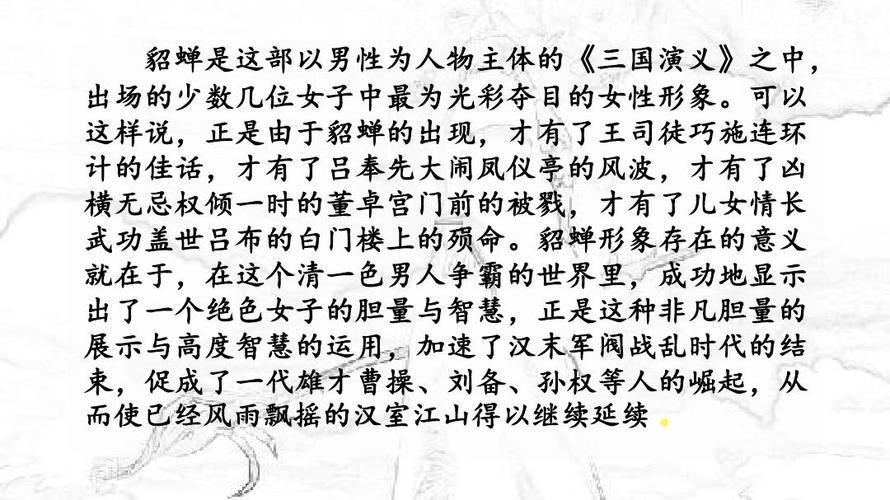 貂蝉是这部以男性为人物主体的《三国演义》之中，
出场的少数几位女子中最为光彩夺目的女性形象。可以
这样说，正是由于貂蝉的出现，才有了王司徒巧施连环
计的佳话，才有了吕奉先大闹凤仪亭的风波，才有了凶
横无忌权倾一时的董卓宫门前的被戮，才有了儿女情长
武功盖世吕布的白门楼上的殒命。貂蝉形象存在的意义
就在于，在这个清一色男人争霸的世界里，成功地显示
出了一个绝色女子的胆量与智慧，正是这种非凡胆量的
展示与高度智慧的运用，加速了汉末军阀战乱时代的结
束，促成了一代雄才曹操、刘备、孙权等人的崛起，从
而使已经风雨飘摇的汉室江山得以继续延续。